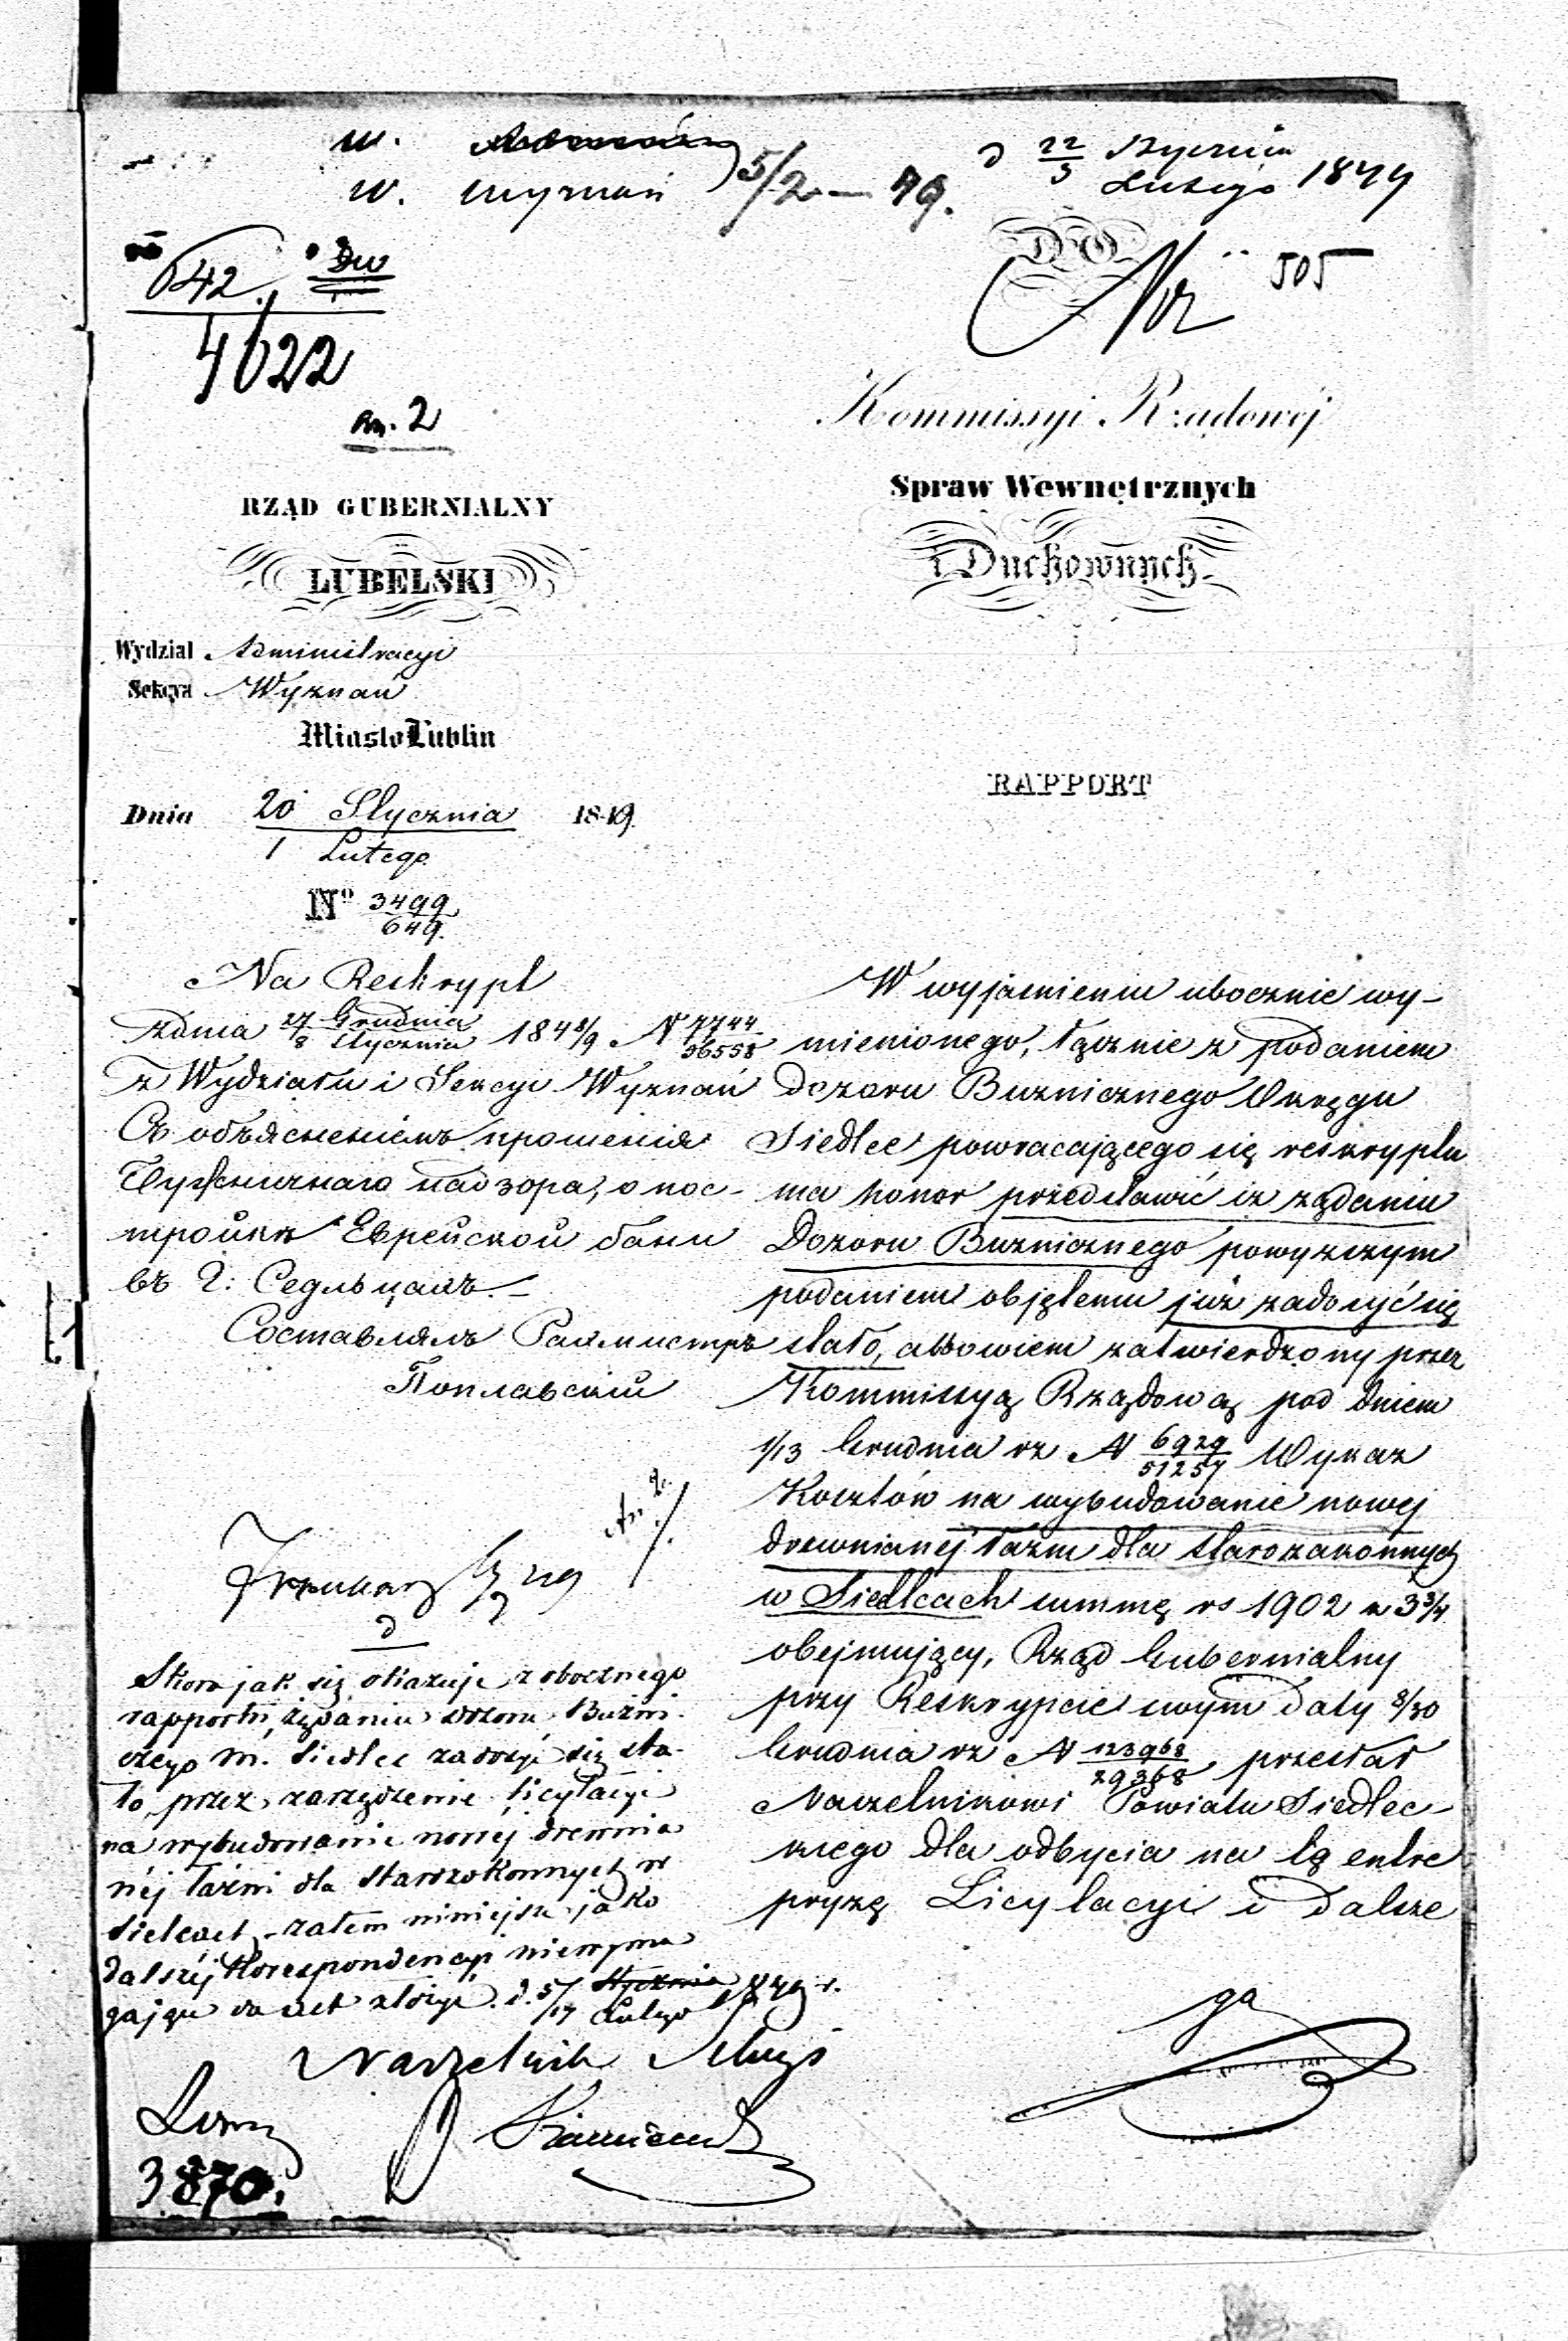 W. Wyznań 5/2 — 49.
d 22/3 Stycznia Lutego 1849
642. Dw
4622
an. 2
DO
Nr 505
Kommissyi Rządowéj
Spraw Wewnętrznych
i Duchownych
RZĄD GUBERNIALNY
LUBELSKI
Wydział Administracyi
Sekcya Wyznań
Miasto Lublin
Dnia 20 Stycznia 1849
1 Lutego
No 3499/649.
RAPPORT
Na Reskrypt
z dnia 27 Grudnia/8 Stycznia 1848/9 N 7744/36558
z Wydziału i Sekcyi Wyznań
Съ объясненіемъ прошенія
Бужничнаго надзора, о пос-
тройкѣ Еврейской бани
въ Г: Седльцахъ.—
Составлялъ Рахмистръ
Поплавскій
W wyjaśnieniu ubocznie wy-
mienionego, łącznie z podaniem
Dozoru Buznicznego Okręgu
Siedlce powracającego się reskryptu
ma honor przedstawić iż żądaniu
Dozoru Buzniczego powyższym
podaniem objętemu już zadosyć się
stało, albowiem zatwierdzony przez
Kommissyą Rządową pod dniem
1/13 Grudnia rz N 6929/51257 Wykaz
Kosztów na wybudowanie nowej
drewnianej łaźni dla starozakonnych
w Siedlcach summę rs 1902 k 3 3/4
obejmujący, Rząd Gubernialny
przy Reskrypcie swym daty 8/30
Grudnia rz N 123968/29368 przesłał
Naczelnikowi Powiatu Siedlec-
kiego dla odbycia na tą entre
pryzę Licytacyi i dalsze
ga
An. 2.
d
Skoro jak się okazuje z obocznego
rapportu, żądaniu dozoru Buźni-
czego m. Siedlec zadosyć się sta-
ło, przez zarządzenie licytacyi
na wybudowanie nowéj drewnia
néj łaźni dla starozakonnych w
Sielcach, zatem niniejsze jako
dalszéj Korespondencyi niewyma
gające do akt złożyć. d. 5/17 Lutego 1849 r.
Naczelnik Służb
3870.